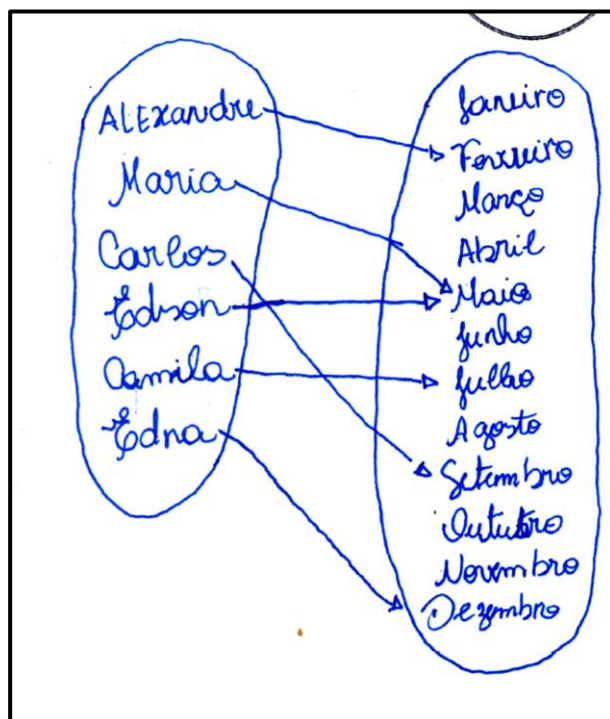 ALExandre
Maria
Carlos
Edson
Camila
Edna
Janeiro
Fevereiro
Março
Abril
Maio
Junho
Julho
Agosto
Setembro
Outubro
Novembro
Dezembro